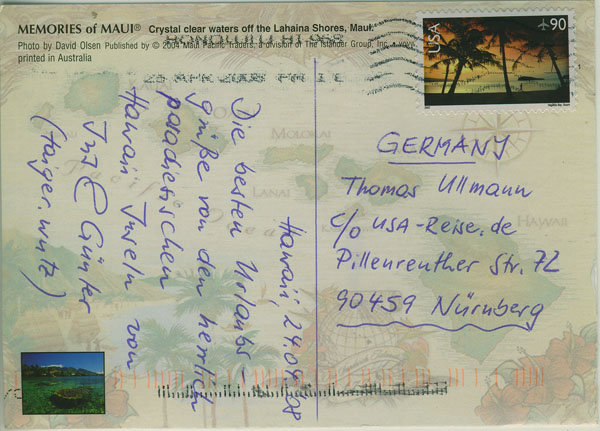 MEMORIES of MAUI® Crystal clear waters off the Lahaina Shores, Maui.
Photo by David Olsen Published by © 2004 Maui Pacific Traders, a division of The Islander Group, Inc.
printed in Australia
HONOLULU HI 968
USA
90
Hawaii, 24.04.08
Die besten Urlaubs-
grüße von den herrlich
paradiesischen
Hawaii Inseln von
Günter
(Haiger.wutz)
MOLOKAI
LANAI
MAUI
HAWAII
GERMANY
Thomas Ullmann
c/o USA-Reise.de
Pillenreuther Str. 72
90459 Nürnberg